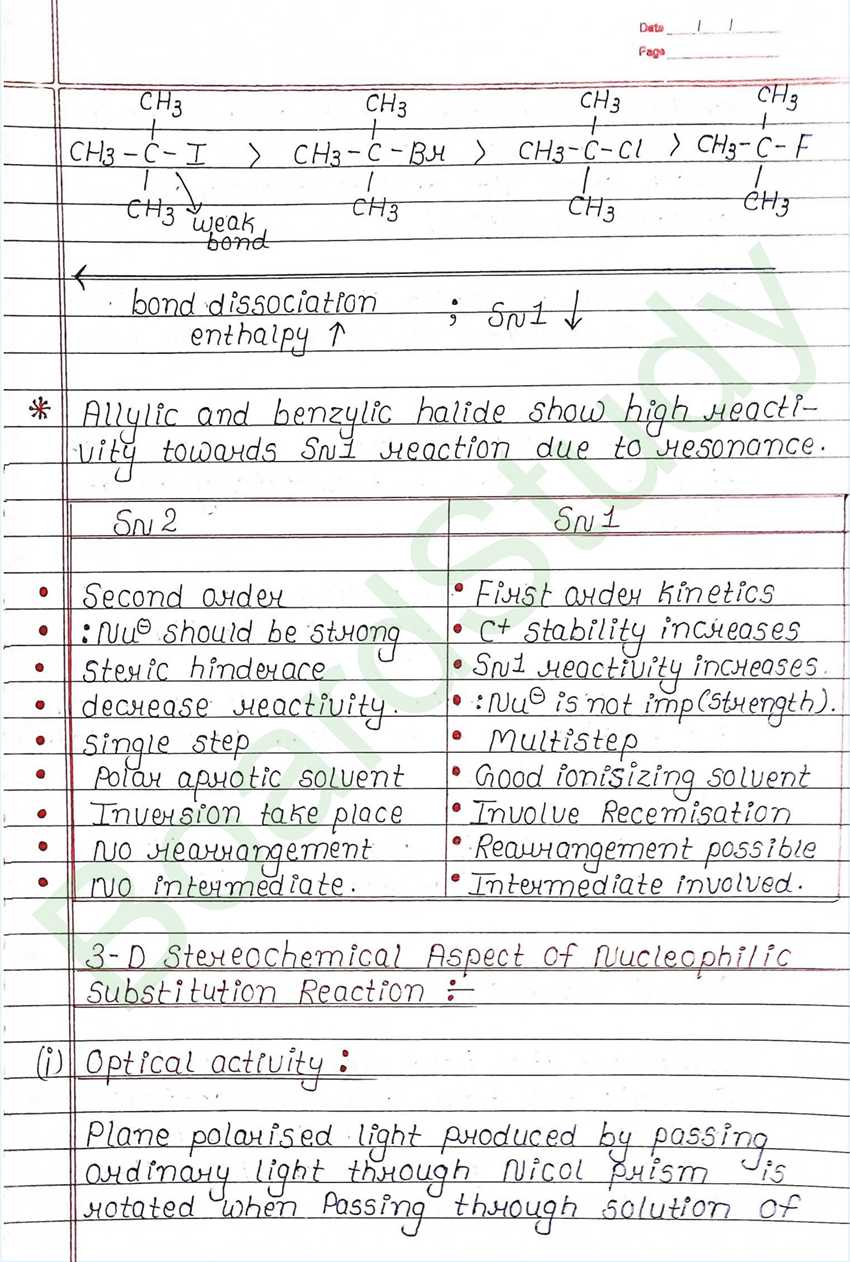 Date / /
Page
CH3 CH3 CH3 CH3
CH3-C-I > CH3-C-Br > CH3-C-Cl > CH3-C-F
CH3 CH3 CH3 CH3
weak
bond
bond dissociation ; SN1 ↓
enthalpy ↑
* Allylic and benzylic halide show high reacti-
vity towards SN1 reaction due to resonance.
SN2 SN1
• Second order • First order kinetics
• :Nu⊖ should be strong • C+ stability increases
• steric hinderace • SN1 reactivity increases.
• decrease reactivity. • :Nu⊖ is not imp(strength).
• single step • Multistep
• Polar aprotic solvent • Good ionisizing solvent
• Inversion take place • Involve Recemisation
• No rearrangement • Rearrangement possible
• No intermediate. • Intermediate involved.
3-D Stereochemical Aspect of Nucleophilic
Substitution Reaction :-
(i) Optical activity :
Plane polarised light produced by passing
ordinary light through Nicol prism is
rotated when Passing through solution of
BoardStudy